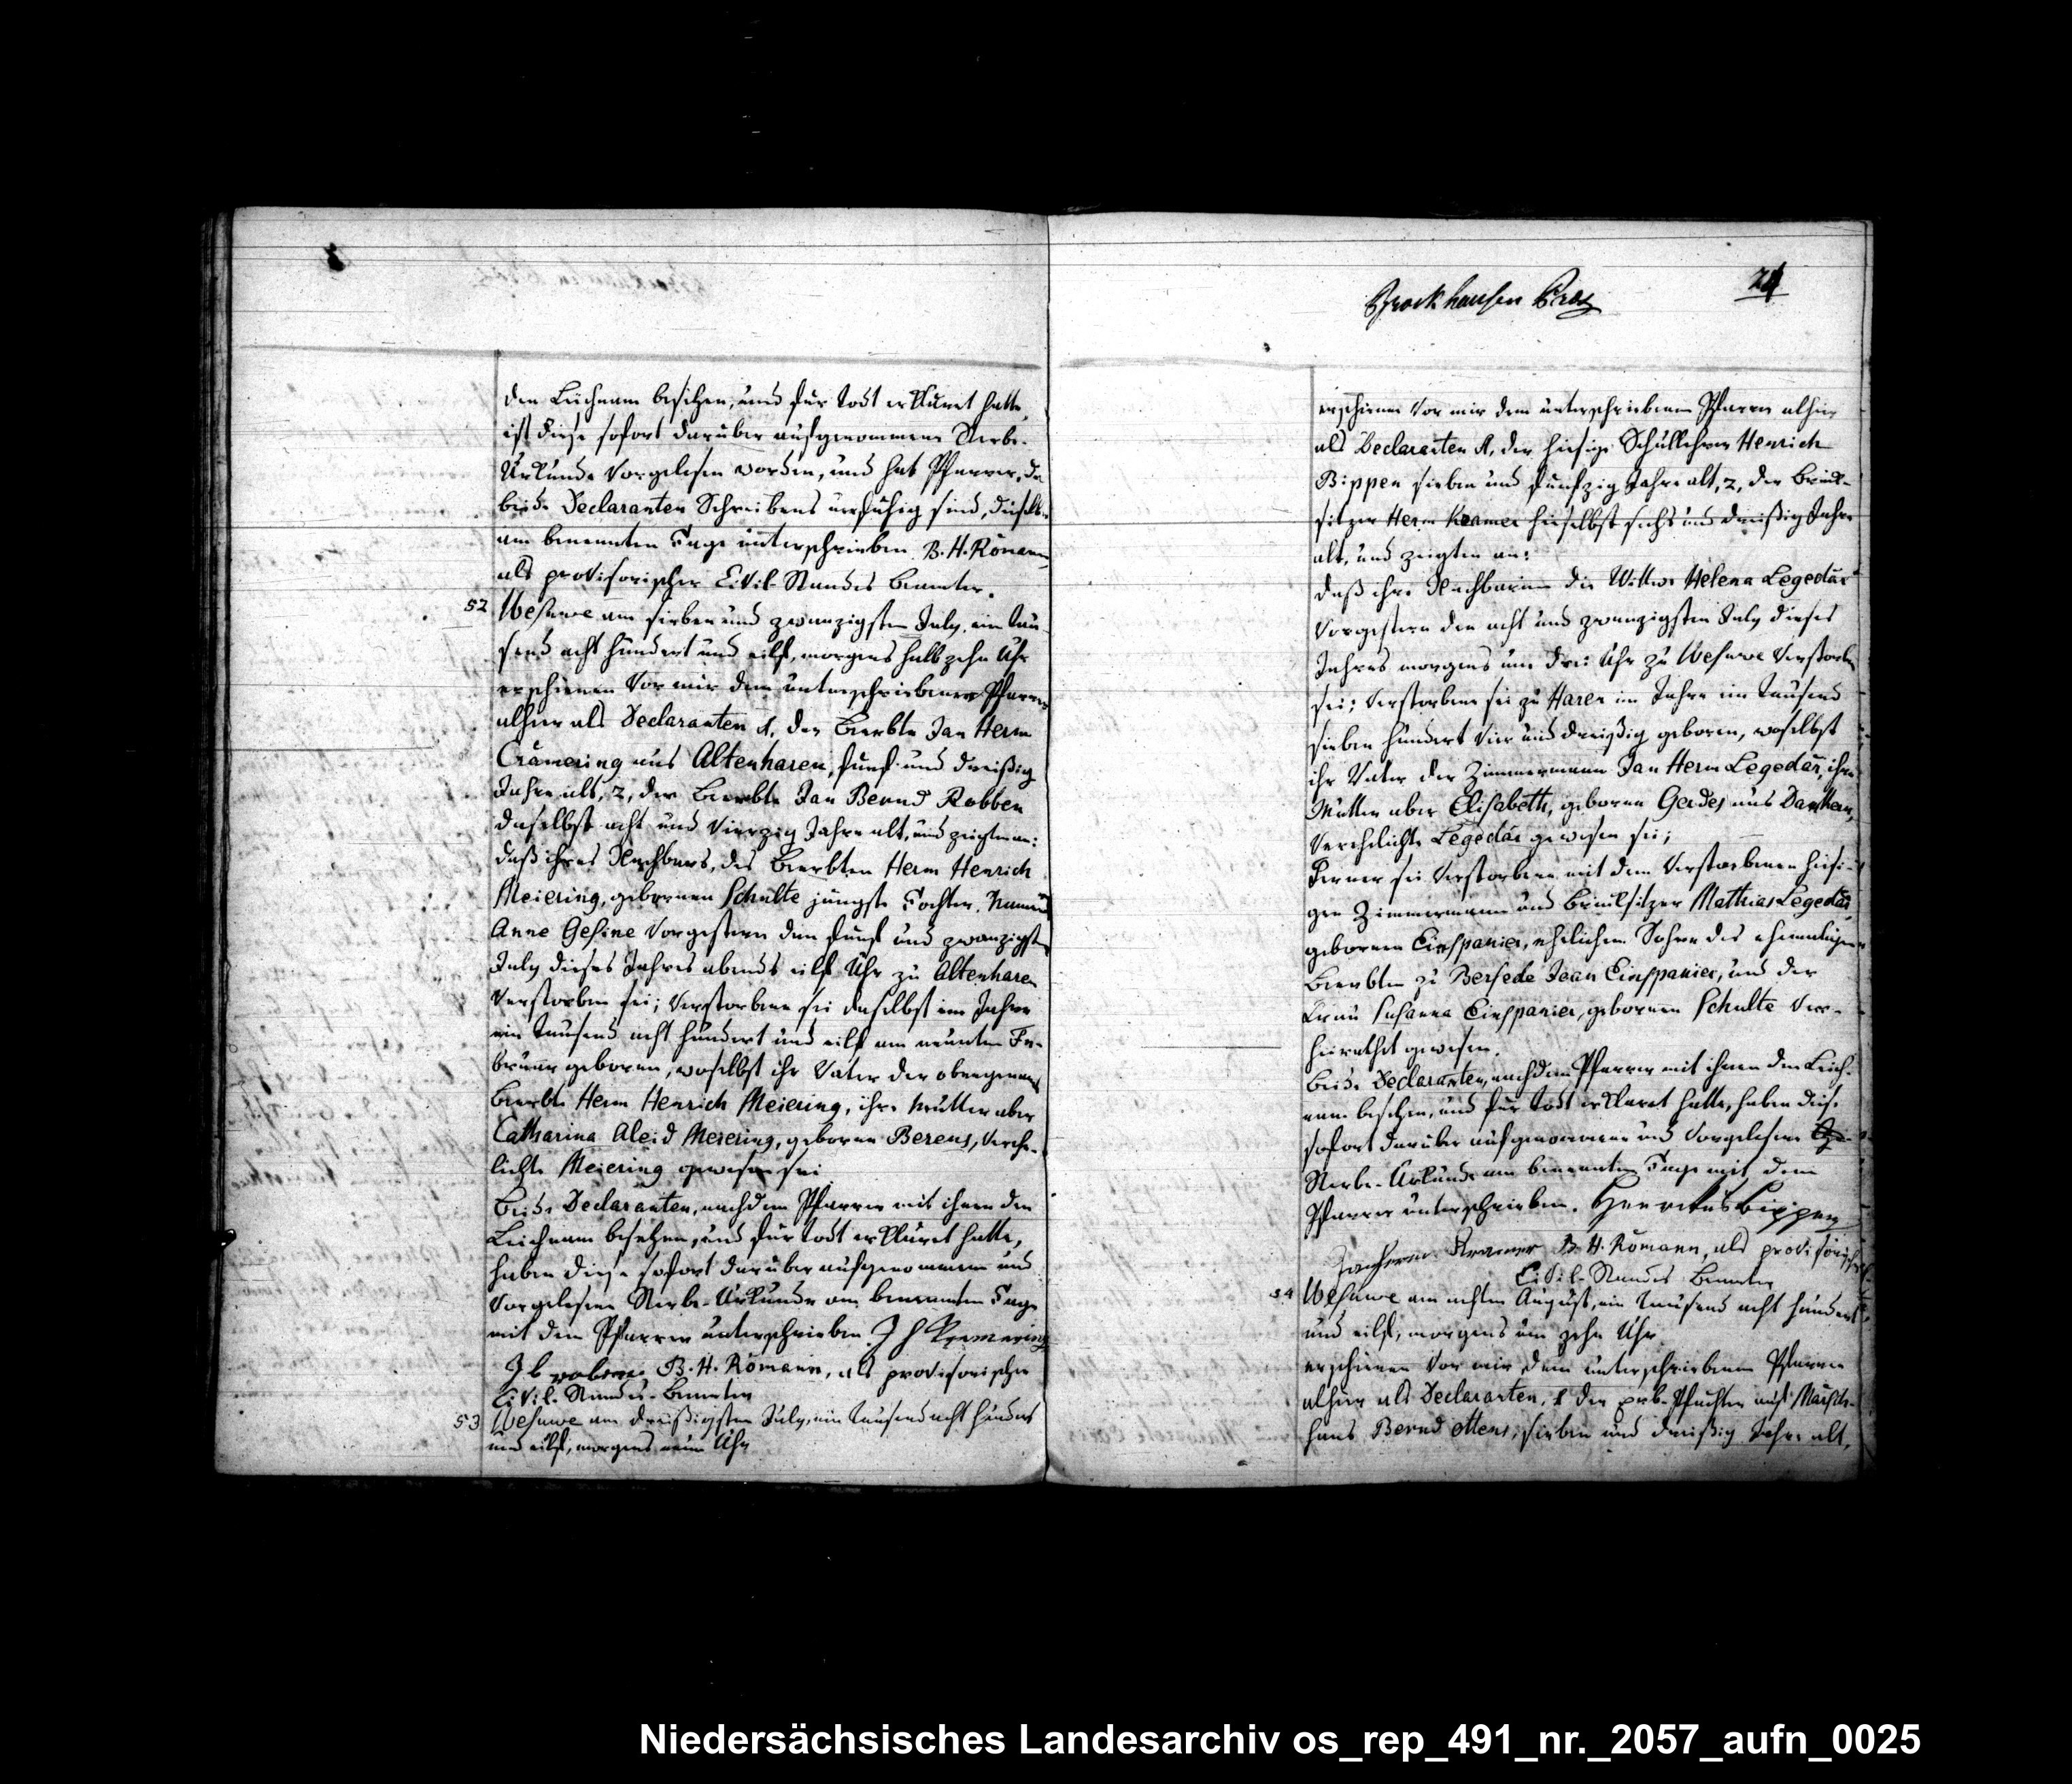 den Leichnam besehen, und für todt erkläret hatte,
ist diese sofort darüber aufgenommene Sterbe-
Urkunde vorgelesen worden, und hat Pfarrer, da
beide Declaranten Schreibens unfähig sind, dieselbe
am benennten Tage unterschrieben B. H. Römann,
als provisorischer Civil-Standes Beamter.
52 Wesuwe am sieben und zwanzigsten July, ein tau-
send acht hundert und eilf, morgens halb zehn Uhr
erschienen vor mir dem unterschriebenen Pfarrer
alhier als Declaranten 1, der Beerbte Jan Herm
Crämering aus Altenharen, fünf und dreißig
Jahre alt, 2, der Beerbte Jan Bernd Robben
daselbst acht und vierzig Jahre alt, und zeigten an:
daß ihres Nachbars, des Beerbten Herm Henrich
Meiering, gebornen Schulte jüngste Tochter, Namens
Anne Gesine vorgestern den fünf und zwanzigsten
July dieses Jahres abends eilf Uhr zu Altenharen
verstorben sei; Verstorbene sei daselbst im Jahre
ein tausend acht hundert und eilf am neunten Fe-
bruar geboren, woselbst ihr Vater der obengenannte
Beerbte Herm Henrich Meiering, ihre Mutter aber
Catharina Aleid Meiering, geborne Berens, verehe-
lichte Meiering gewesen sei
Beide Declaranten, nachdem Pfarrer mit ihnen den
Leichnam besehen, und für todt erkläret hatte,
haben diese sofort darüber aufgenommene und
vorgelesene Sterbe-Urkunde am benennten Tage
mit dem Pfarrer unterschrieben. J H Kremering
J b roben B. H. Römann, als provisorischer
Civil-Standes-Beamter
53 Wesuwe am dreißigsten July, ein tausend acht hundert
und eilf, morgens neun Uhr
Brockhausen
24
erschienen vor mir dem unterschriebenen Pfarrer alhier
als Declaranten 1, der hiesige Schullehrer Henrich
Bippen sieben und fünfzig Jahre alt, 2, der Brink-
sitzer Herm Kramer hieselbst sechs und dreißig Jahre
alt, und zeigten an:
daß ihre Nachbarinn die Wittwe Helena Legedär
vorgestern den acht und zwanzigsten July dieses
Jahres morgens um drei Uhr zu Wesuwe verstorben
sei; Verstorbene sei zu Haren im Jahre ein tausend
sieben hundert vier und dreißig geboren, woselbst
ihr Vater der Zimmermann Jan Herm Legedär, ihre
Mutter aber Elisabeth, geborne Gerdes aus Dankern,
verehelichte Legedär gewesen sei;
Ferner sei Verstorbene mit dem verstorbenen hiesi-
gen Zimmermann und Brinksitzer Mathias Legedär,
gebornen Einspanier, ehelichem Sohne des ehemaligen
Beerbten zu Bersede Jean Einspanier, und der
Frau Susanna Einspanier, gebornen Schulte ver-
heirathet gewesen.
Beide Declaranten, nachdem Pfarrer mit ihnen den Leich-
nam besehen, und für todt erkläret hatte, haben diese
sofort darüber aufgenommene und vorgelesene
Sterbe-Urkunde am benennten Tage mit dem
Pfarrer unterschrieben. Henrikus Bippen
Jan herm Kramer B. H. Römann, als provisorischer
Civil-Standes Beamter
54 Wesuwe am achten August, ein tausend acht hundert
und eilf, morgens um zehn Uhr
erschienen vor mir dem unterschriebenen Pfarrer
alhier als Declaranten, 1 der erb-Pächter aus
haus Bernd Ottens, sieben und dreißig Jahre alt,
Niedersächsisches Landesarchiv os_rep_491_nr._2057_aufn_0025